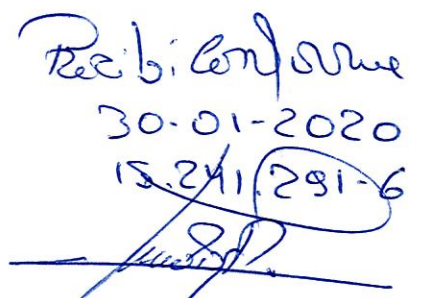 Recibi Conforme
30-01-2020
15.241.291-6